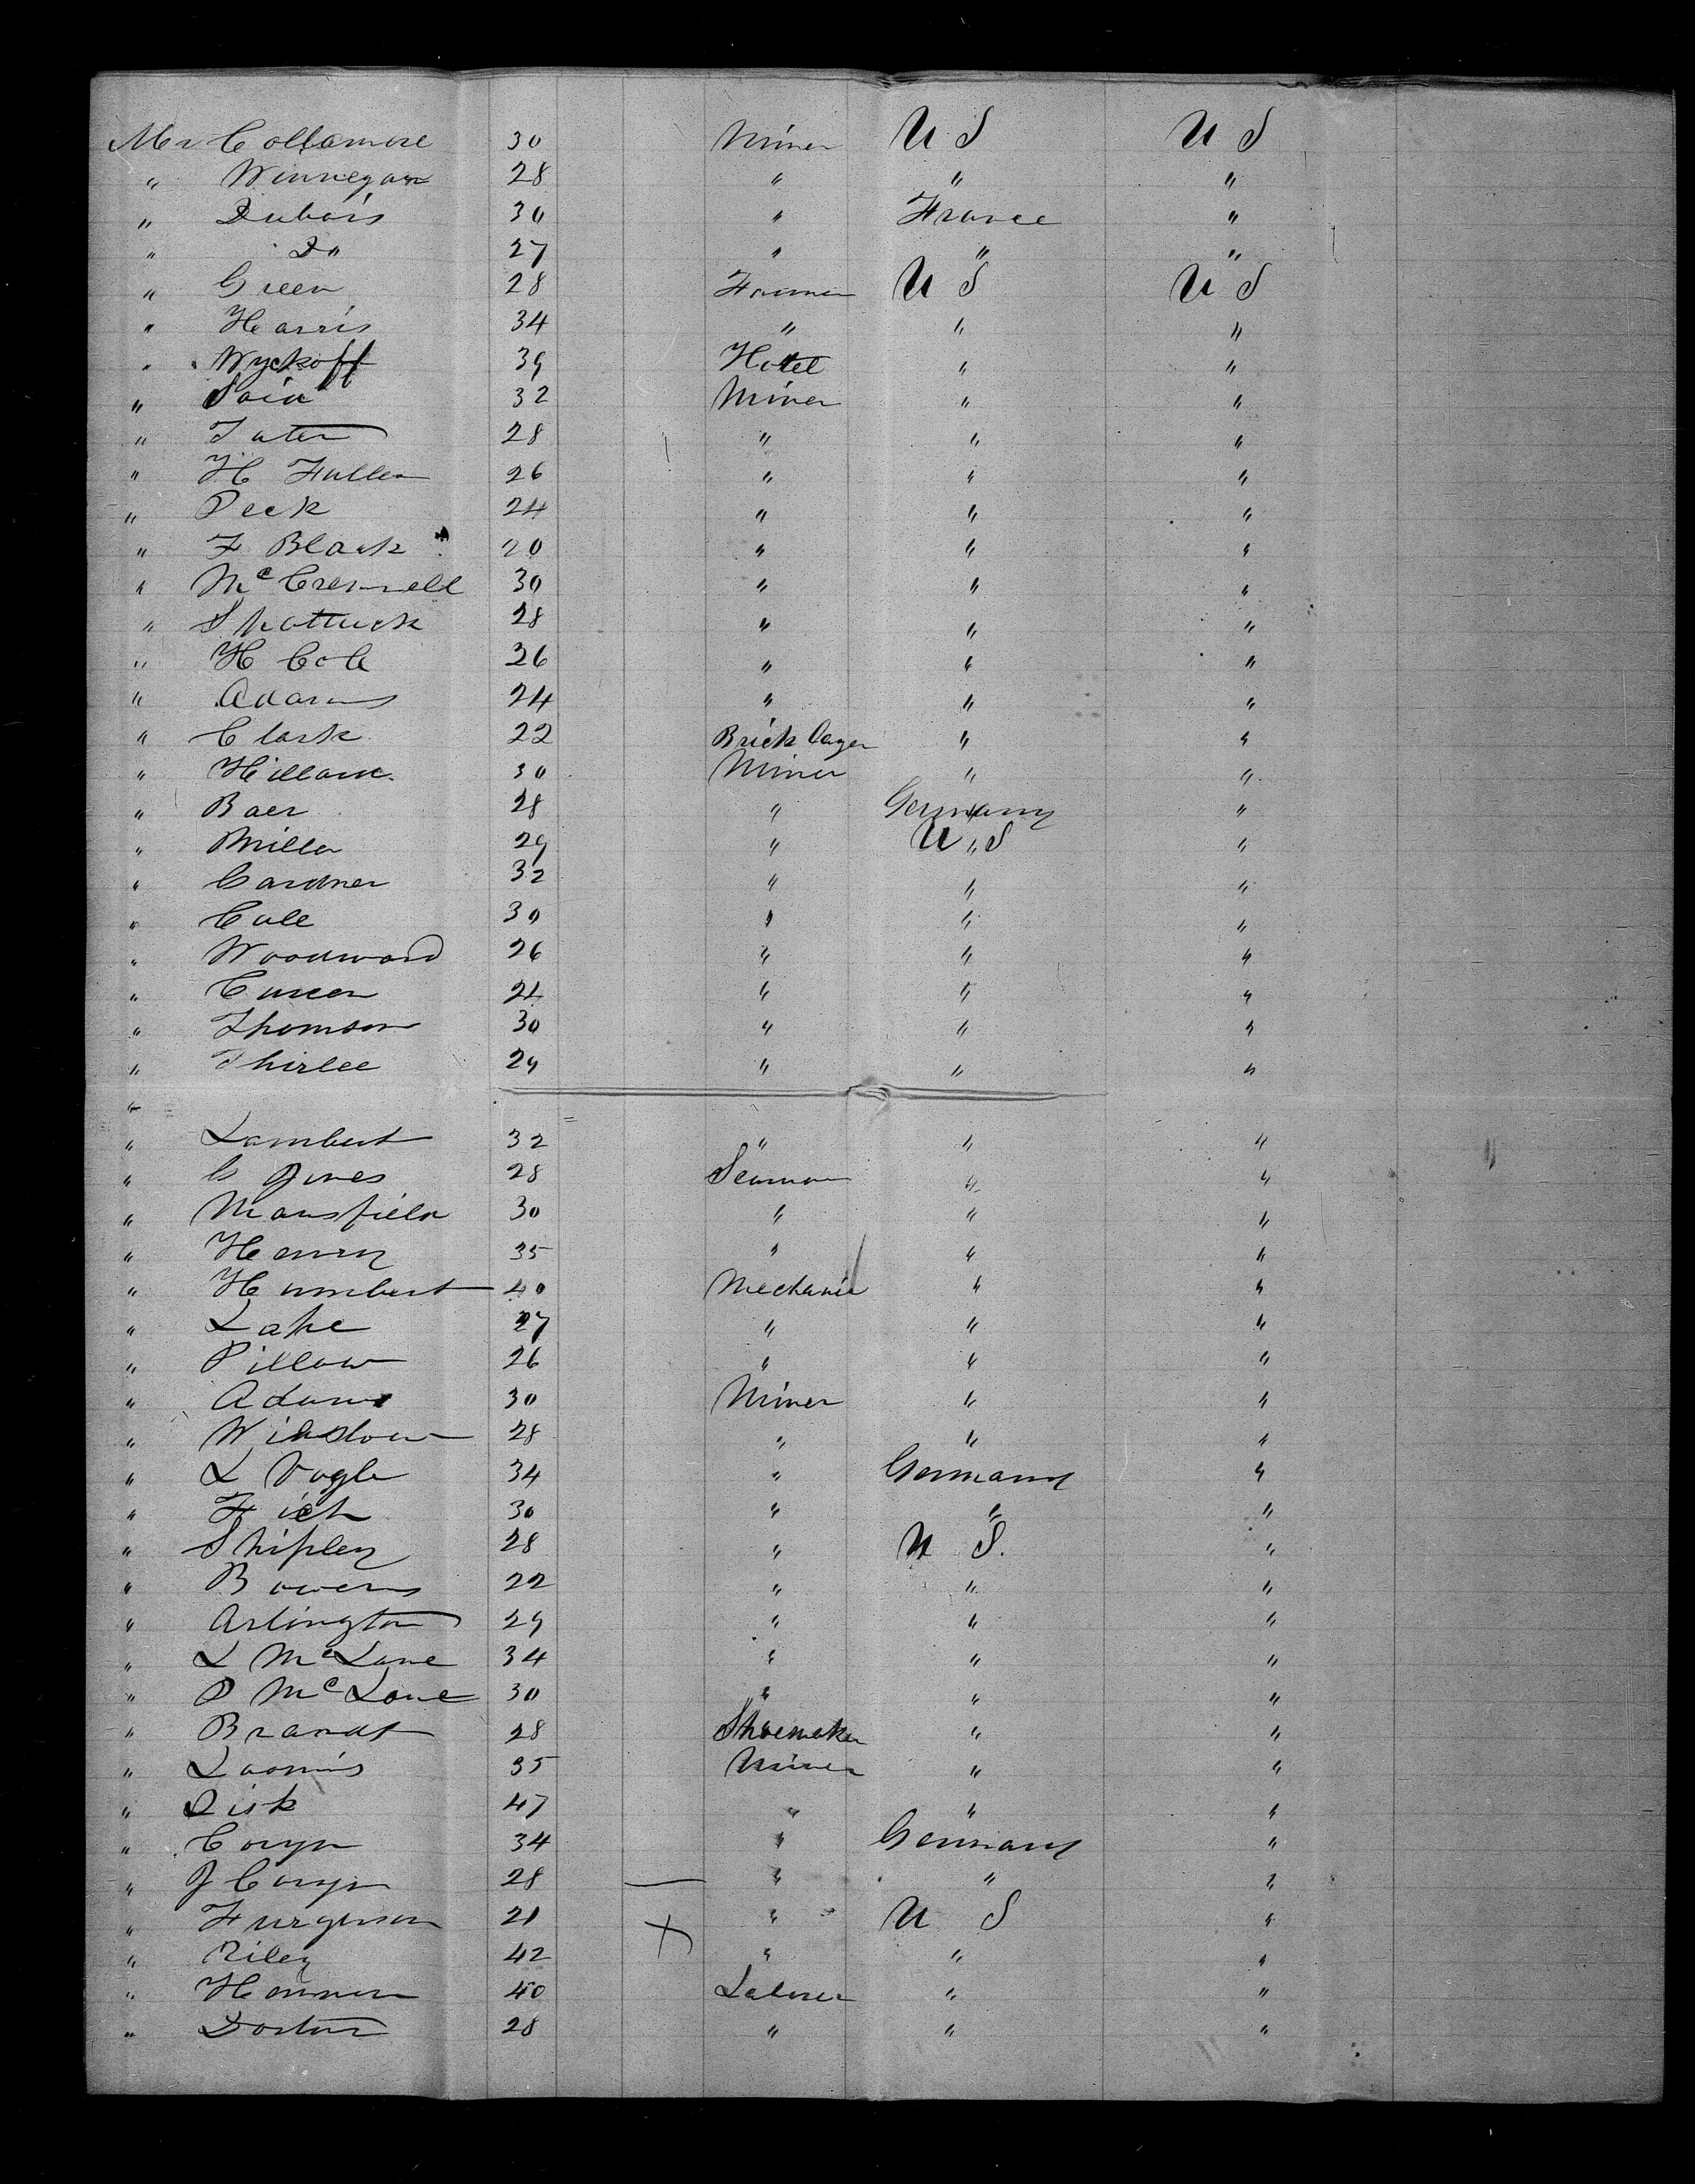 Mr Collamore 30 Miner U S U S
" Winnegar 28 " " "
" Dubois 30 " France "
" Do 27 " " "
" Green 28 Farmer U S U S
" Harris 34 " " "
" Wyckoff 39 Hotel " "
" 32 Miner " "
" Tater 28 " " "
" H Fuller 26 " " "
" Peck 24 " " "
" F Black 20 " " "
" 30 " " "
" Shattuck 28 " " "
" H Cole 26 " " "
" Adams 24 " " "
" Clark 22 Brick layer " "
" 30 Miner " "
" Baer 28 " Germany "
" Miller 29 " U S "
" Cardner 32 " " "
" Cole 30 " " "
" Woodward 26 " " "
" 24 " " "
" Thomson 30 " " "
" Thirlee 29 " " "
"
" Lambert 32 " " "
" C Jones 28 Seaman " "
" Mansfield 30 " " "
" Henry 35 " " "
" Humbert 40 Mechanic " "
" Lake 27 " " "
" Pillow 26 " " "
" Adams 30 Miner " "
" Winslow 28 " " "
" L Vogle 34 " Germany "
" Fich 30 " " "
" Shipley 28 " U S. "
" Bowers 22 " " "
" Arlington 29 " " "
" L McLane 34 " " "
" P McLane 30 " " "
" Brandt 28 Shoemaker " "
" Loomis 35 Miner " "
" Lisk 47 " " "
" Coryn 34 " Germany "
" J Coryn 28 " " "
" Furguson 21 " U S "
" Riley 42 " " "
" 40 Laborer " "
" Dorton 28 " " "